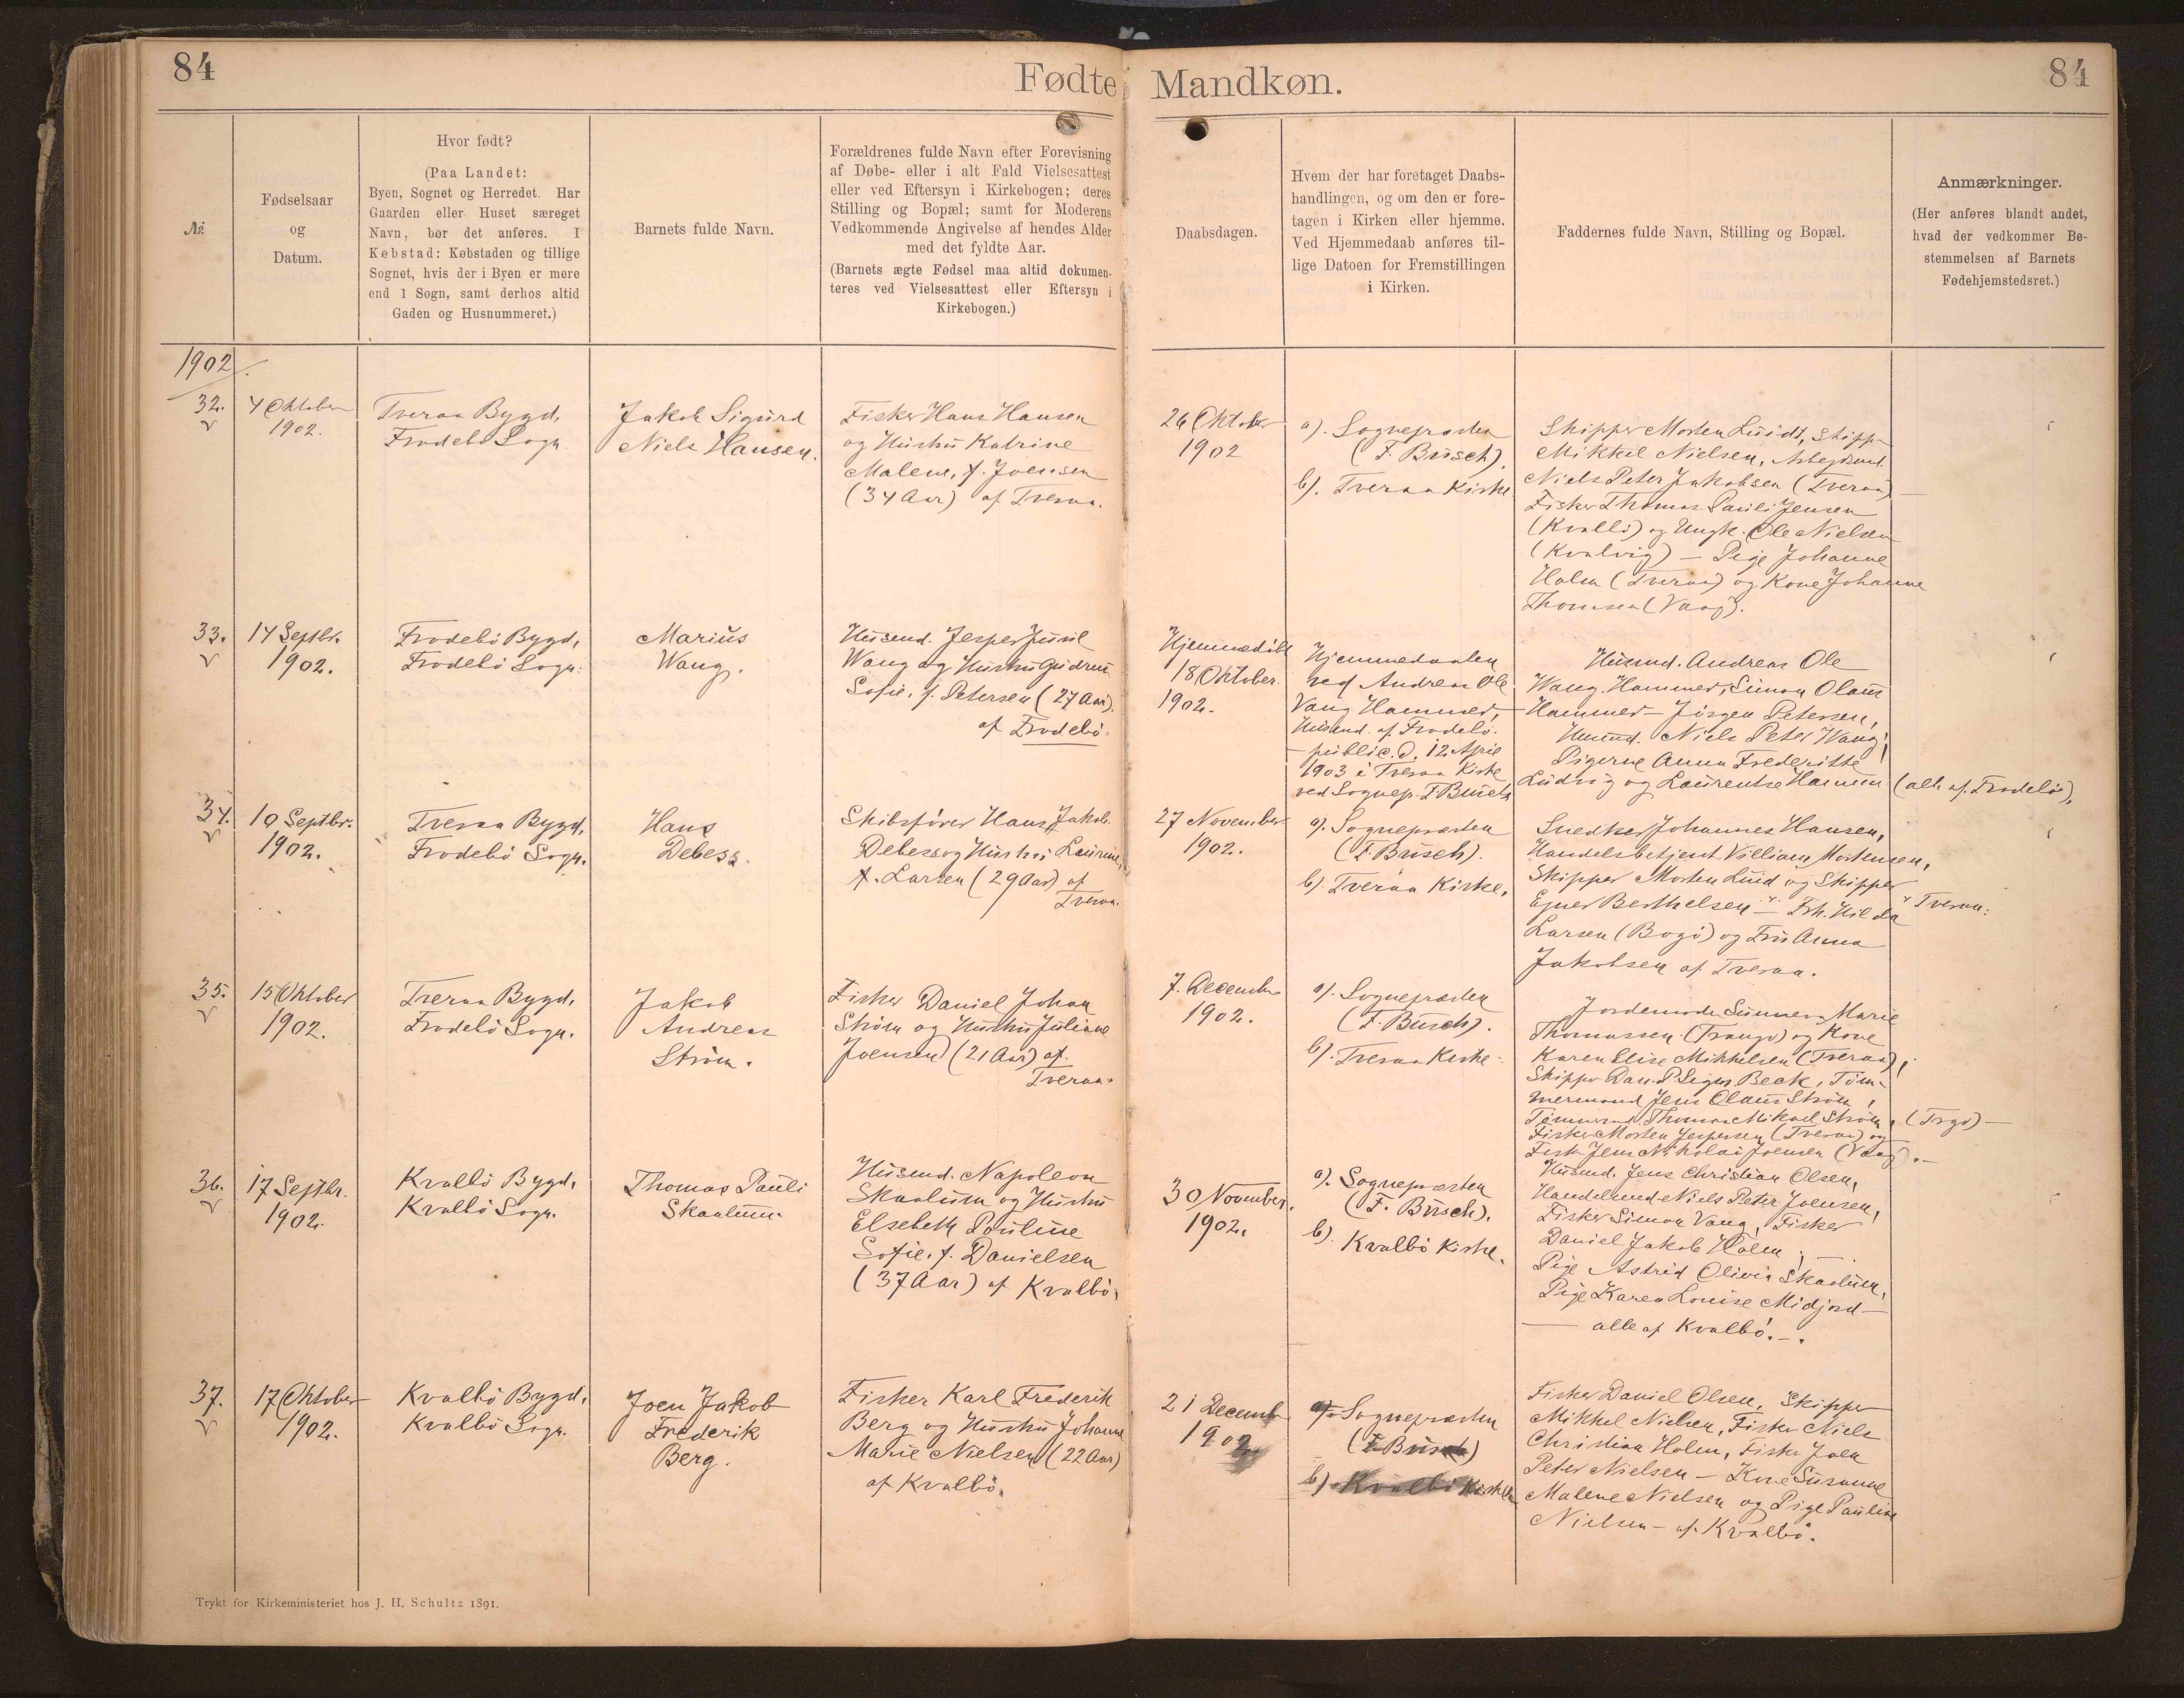 84
Fødte Mandkøn.
84
№
Fødselsaar
og
Datum.
Hvor født?
(Paa Landet:
Byen, Sognet og Herredet. Har
Gaarden eller Huset særeget
Navn, bør det anføres. I
Købstad: Købstaden og tillige
Sognet, hvis der i Byen er mere
end 1 Sogn, samt derhos altid
Gaden og Husnummeret.)
Barnets fulde Navn.
Forældrenes fulde Navn efter Forevisning
af Døbe- eller i alt Fald Vielsesattest
eller ved Eftersyn i Kirkebogen; deres
Stilling og Bopæl; samt for Moderens
Vedkommende Angivelse af hendes Alder
med det fyldte Aar.
(Barnets ægte Fødsel maa altid dokumen-
teres ved Vielsesattest eller Eftersyn i
Kirkebogen.)
Daabsdagen.
Hvem der har foretaget Daabs-
handlingen, og om den er fore-
tagen i Kirken eller hjemme.
Ved Hjemmedaab anføres til-
lige Datoen for Fremstillingen
i Kirken.
Faddernes fulde Navn, Stilling og Bopæl.
Anmærkninger.
(Her anføres blandt andet,
hvad der vedkommer Be-
stemmelsen af Barnets
Fødehjemstedsret.)
1902.
32.
4 Oktober
1902.
Tveraa Bygd,
Frodebö Sogn.
Jakob Sigurd
Niels Hansen.
Fisker Hans Hansen
og Hustru Katrine
Malene, f. Joensen
(34 Aar) af Tveraa.
26 Oktober
1902
a). Sognepræsten
(F. Busch).
b). Tveraa Kirke
Skipper Morten Luidt, Skipp
Mikkel Nielsen, Arbejdsmd.
Niels Peter Jakobsen (Tveraa)
Fisker Thomas Pauli Jensen
(Kvalbö) og Ungk. Ole Nielsen
(Kvalvig) — Pige Johanne
Holm (Tveraa) og Kone Johanne
Thomsen (Vaag).
33.
14 Septbr.
1902.
Frodebö Bygd,
Frodebö Sogn.
Marius
Wang.
Husmd. Jesper Juul
Wang og Hustru Gudrun
Sofie, f. Petersen (27 Aar).
af Frodebö.
Hjemmedöbt
18 Oktober.
1902.
Hjemmedaaben
ved Andreas Ole
Vang Hammer,
Husmd. af Frodebö.
— public. d. 12 April
1903 i Tveraa Kirke
ved Sognep. F Busch
Husmd. Andreas Ole
Wang. Hammer, Simon Olaus
Hammer — Jörgen Petersen,
Husmd. Niels Peter Wang,
Pigerne Anna Frederikke
Ludvig og Laurentse Hammer (alle af Frodebö),
34.
10 Septbr.
1902.
Tveraa Bygd,
Frodebö Sogn.
Hans
Debess.
Skibsförer Hans Jakob
Debess og Hustru Laurine,
f. Larsen (29 Aar) af
Tveraa.
27 November
1902.
a). Sognepræsten
(F. Busch).
b). Tveraa Kirke.
Snedker Johannes Hansen,
Handelsbetjent Villiam Mortensen,
Skipper Morten Luid og Skipper
Ejner Berthelsen — Frk. Hilda
Tveraa:
Larsen (Bogö) og Fru Anna
Jakobsen af Tveraa.
35.
15 Oktober
1902.
Tveraa Bygd,
Frodebö Sogn.
Jakob
Andreas
Ström.
Fisker Daniel Johan
Ström og Hustru Juliane
Joensen (21 Aar) af.
Tveraa.
7. December
1902.
a). Sognepræsten
(F. Busch).
b). Tveraa Kirke.
Jordemoder Sunneva Marie
Thomassen (Trango) og Kone
Karen Elise Mikkelsen (Tveraa),
Skipper Dan. P. Sigm. Beck, Töm-
mermand Jens Olaus Ström,
Tömmermd. Thomas Mikael Ström, (Trgö) —
Fisker Morten Jespersen (Tveraa) og
Fisk Jens Nikolai Joensen (Vaag). —
36.
17 Septbr.
1902.
Kvalbö Bygd,
Kvalbö Sogn.
Thomas Pauli
Skaalum.
Husmd. Napoleon
Skaalum og Hustru
Elsebeth Pauline
Sofie, f. Danielsen
(37 Aar) af Kvalbö,
30 November.
1902.
a). Sognepræsten
(F. Busch).
b). Kvalbö Kirke.
Husmd. Jens Christian Olsen,
Handelsmd. Niels Peter Joensen,
Fisker Simon Vang, Fisker
Daniel Jakob Holm; —
Pige Astrid Olivia Skaalum,
Pige Karen Louise Midjord —
— alle af Kvalbö. —
37.
17 Oktober
1902.
Kvalbö Bygd,
Kvalbö Sogn.
Joen Jakob
Frederik
Berg.
Fisker Karl Frederik
Berg og Hustru Johanne
Marie Nielsen (22 Aar)
af Kvalbö.
21 Decemb
1902
a). Sognepræsten
(F. Busch)
b) Kvalbö Kirke
Fisker Daniel Olsen, Skipper
Mikkel Nielsen, Fisker Niels
Christian Holm, Fisker Joen
Peter Nielsen — Kone Susanne
Malene Nielsen og Pige Pauline
Nielsen — af Kvalbö.
Trykt for Kirkeministeriet hos J. H. Schultz 1891.